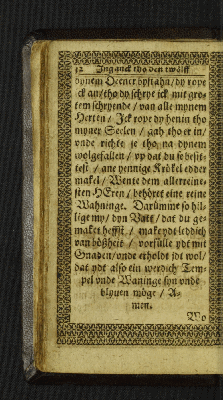 12 Inganck tho den twölff
dynem Deener bystaha / dy rope
ick an / tho dy schrye ick mit gro-
tem schryende / van alle mynem
Herten / Jck rope dy henin tho
myner Seelen / gah tho er in /
vnde richte je tho na dynem
wolgefallen / vp dat du se besit-
test / ane yennige Krökel edder
makel / Wente dem allerreine-
sten HERren / behöret eine reine
Wahninge. Darümme so hil-
lige my / dyn Vatt / dat du ge-
maket heffst / make ydt leddich
van bößheit / vorfülle ydt mit
Gnaden / vnde erholdt jdt wol /
dat ydt also ein werdich Tem-
pel vnde Waninge syn vnde
blyuen möge / A-
men.
Wo